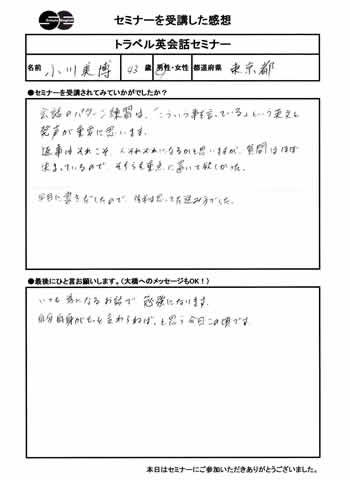 セミナーを受講した感想
トラベル英会話セミナー
名前 小川 43歳 男性・女性 都道府県 東京都
●セミナーを受講されてみていかがでしたか?
会話のパターン練習は、「こういう事を言っている」という英文と
発声が重要に思います。
返事はそれこそ 人それぞれになるかと思いますが、質問はほぼ
決まっているので そちらを重点に置いて欲しかった。
で、
●最後にひと言お願いします。(大橋へのメッセージもOK!)
いつも為になるお話で 勉強になります。
自分自身がもっと変わらねば、と思う今日この頃です。
本日はセミナーにご参加いただきありがとうございました。